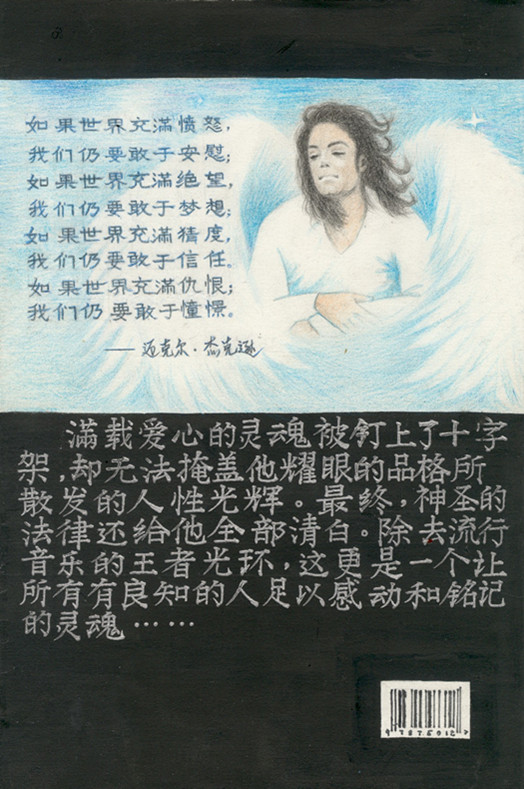 如果世界充滿愤怒,
我们仍要敢于安慰;
如果世界充滿绝望,
我们仍要敢于梦想;
如果世界充滿猜度,
我们仍要敢于信任。
如果世界充滿仇恨;
我们仍要敢于憧憬。
—— 迈克尔·杰克逊
滿载爱心的灵魂被钉上了十字
架,却无法掩盖他耀眼的品格所
散发的人性光辉。最终,神圣的
法律还给他全部清白。除去流行
音乐的王者光环,这更是一个让
所有有良知的人足以感动和铭记
的灵魂……